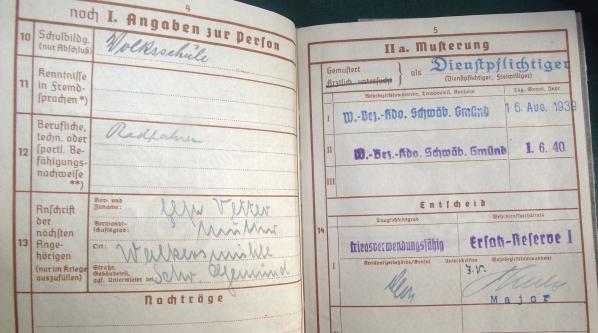 4
noch I. Angaben zur Person
10
Schulbildg.
(nur Abschluß)
Volksschule
11
Kenntnisse
in Fremd-
sprachen *)
12
Berufliche,
techn. oder
sportl. Be-
fähigungs-
nachweise
**)
Radfahren
13
Anschrift
der
nächsten
Ange-
hörigen
(nur im Kriege
auszufüllen)
Vor- und
Zuname:
Vetter
Verwandt-
schaftsgrad:
Mutter
Ort:
Straße,
Gebäudeteil,
ggf. Untermieter bei
Schw. Gemünd
Nachträge
5
II a. Musterung
Gemustert
Ärztlich untersucht
als Dienstpflichtiger
(Dienstpflichtiger, Freiwilliger)
Wehrbezirkskommando, Truppenteil, Annahmestelle
Tag, Monat, Jahr
I
W.-Bez.-Kdo. Schwäb. Gmünd
16. Aug. 1939
II
W.-Bez.-Kdo. Schwäb. Gmünd
1. 6. 40.
III
Entscheid
14
Tauglichkeitsgrad
Wehrdienstverhältnis
I
kriegsverwendungsfähig
Ersatz-Reserve I
Unterschriften
J.V.
Major